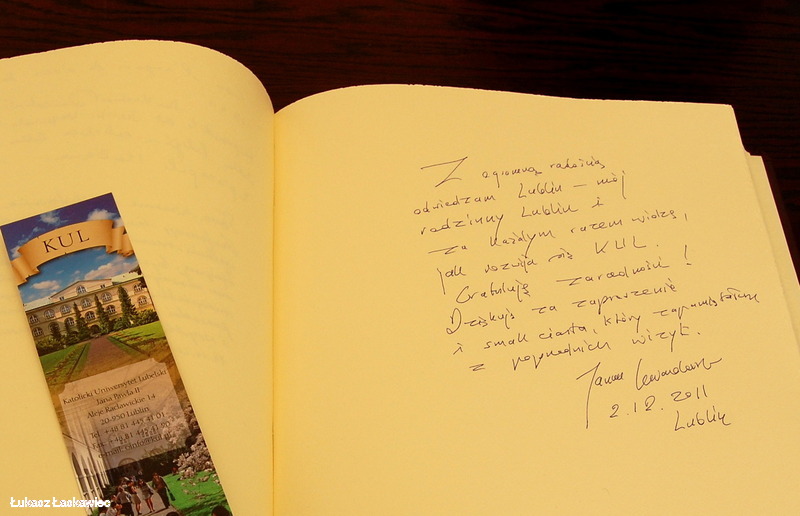 Z ogromną radością
odwiedzam Lublin – mój
rodzinny Lublin i
za każdym razem widzę,
jak rozwija się KUL.
Gratuluję zaradności!
Dziękuję za zaproszenie
i smak ciasta, który zapamiętałem
z poprzednich wizyt.
2.12.2011
Lublin
KUL
Katolicki Uniwersytet Lubelski
Jana Pawła II
Aleje Racławickie 14
20-950 Lublin
Tel. +48 81 445 41 01
Fax +48 81 445
e-mail:
Łukasz Łaskawiec